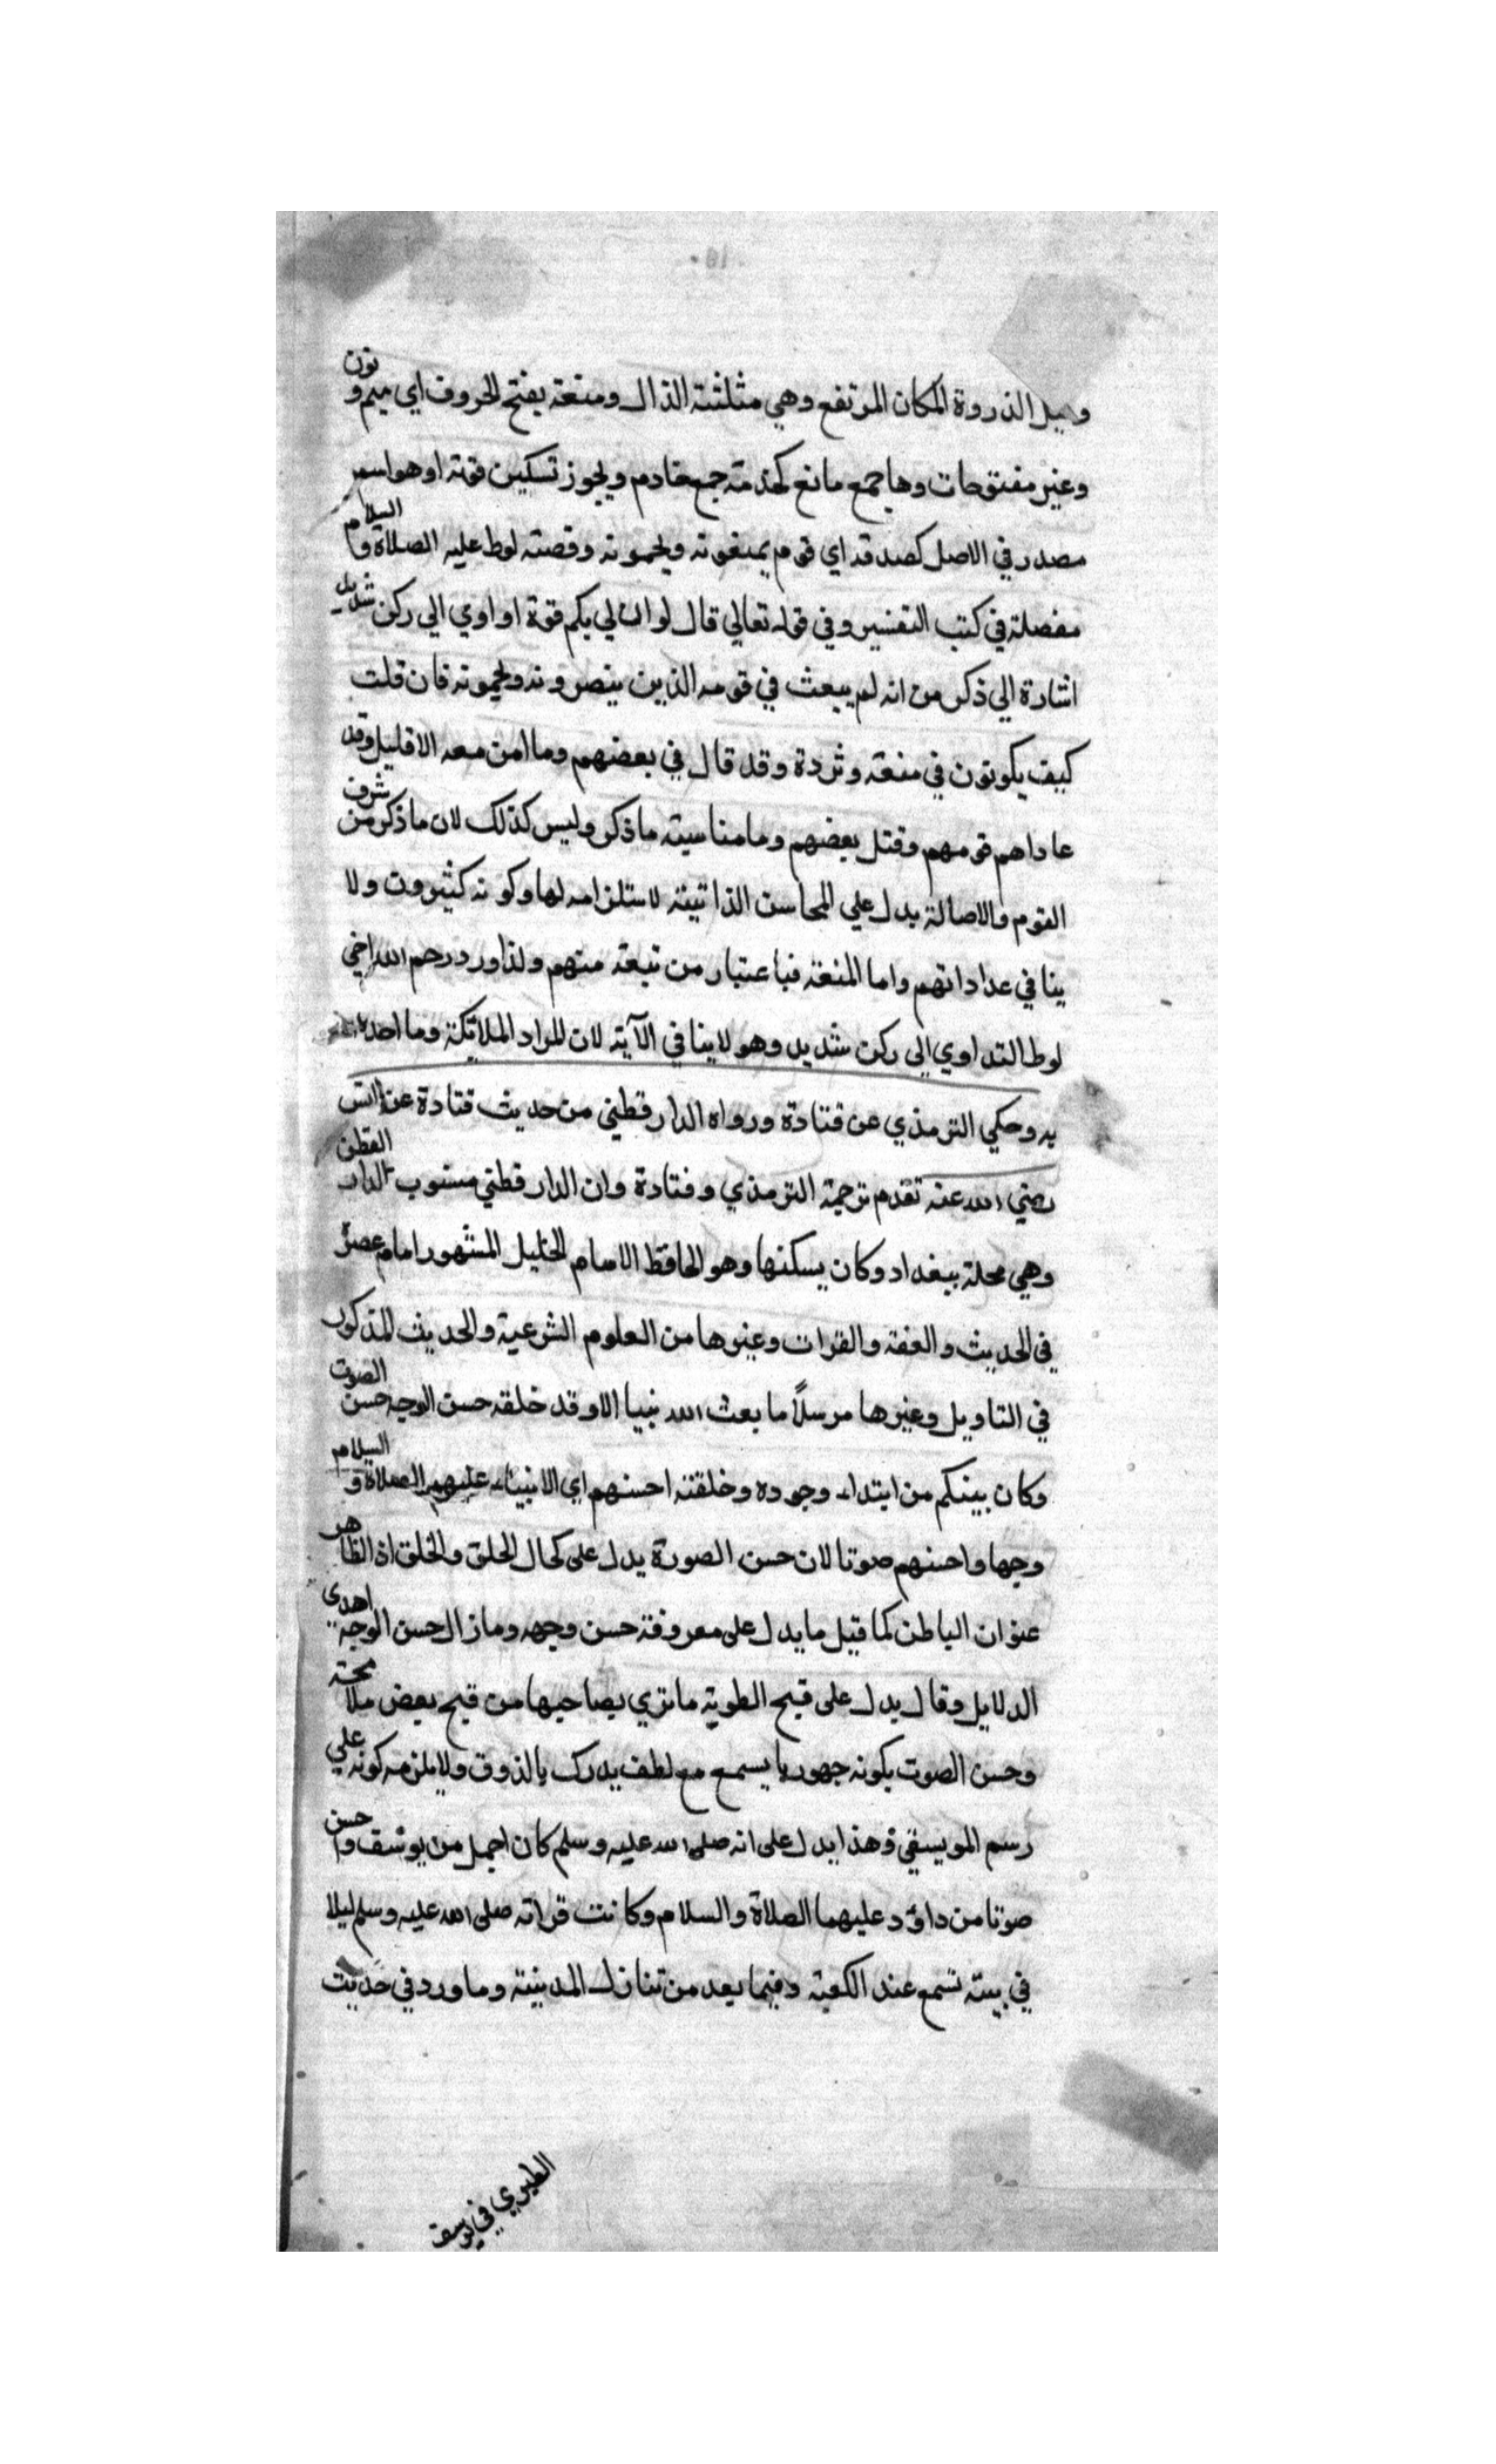 وقيل الذروة المكان المرتفع وهي مثلثة الذال ومنعة بفتح الحروف اي ميم ونون
وعين مفتوحات وهاجمع مانع كخدمة جمع خادم ويجوز تسكين قوته او هو اسم
مصدر في الاصل كصدقة اي قوم يمنعونه ويحمونه وقصته لوط عليه الصلاة والسلام
مفصلة في كتب التفسير وفي قوله تعالي قال لو ان لي بكم قوة او اوي الي ركن شديد
اشارة الي ذكر من انه لم يبعث في قومه الذين ينصرونه ويحمونه فان قلت
كيف يكونون في منعة وثردة وقد قال في بعضهم وما امن معه الا قليل وقد
عاداهم قومهم وقتل بعضهم وما مناسبة ما ذكر وليس كذلك لان ما ذكر من شرف
القوم والاصالة يدل علي المحاسن الذاتية لاستلزامه لها وكونه كثيرون ولا
ينافي عداداتهم واما المنعة فباعتبار من تبعه منهم ولذا ورد رحم الله اخي
لوط القد اوي الى ركن شديد وهو لا ينافي الآية لان المراد الملائكة وما احد
به وحكي الترمذي عن قتادة ورواه الدارقطني من حديث قتادة عن انس
رضي الله عنه تقدم ترجمة الترمذي وقتادة وان الدارقطني منسوب لدار القطن
وهي محلة ببغداد وكان يسكنها وهو الحافظ الامام الجليل المشهور امام عصره
في الحديث والفقه والقرات وغيرها من العلوم الشرعية والحديث المذكور
في التاويل وغيرها مرسلاً ما بعث الله نبيا الا وقد خلقه حسن الوجه حسن الصوت
وكان بينكم من ابتداء وجوده وخلقته احسنهم اي الانبياء عليهم الصلاة والسلام
وجها واحسنهم صوتا لان حسن الصورة يدل على كمال الخلق والخلق اذ الظاهر
عنوان الباطن كما قيل ما يدل على معروفة حسن وجهه وما زال حسن الوجه اهدى
الدلايل وقال يدل على قبح الطوية ما تري بصاحبها من قبح بعض ملامحته
وحسن الصوت بكونه جهوريا يسمع مع لطف يدرك بالذوق ولا يلزمه كونه علي
رسم الموسيقي وهذا يدل على انه صلى الله عليه وسلم كان اجمل من يوسف واحسن
صوتا من داؤد عليهما الصلاة والسلام وكانت قراته صلى الله عليه وسلم ليلا
في بيته تسمع عند الكعبة وفيما بعد من تنازل المدينة وما ورد في حديث
الطيوي في يوسف